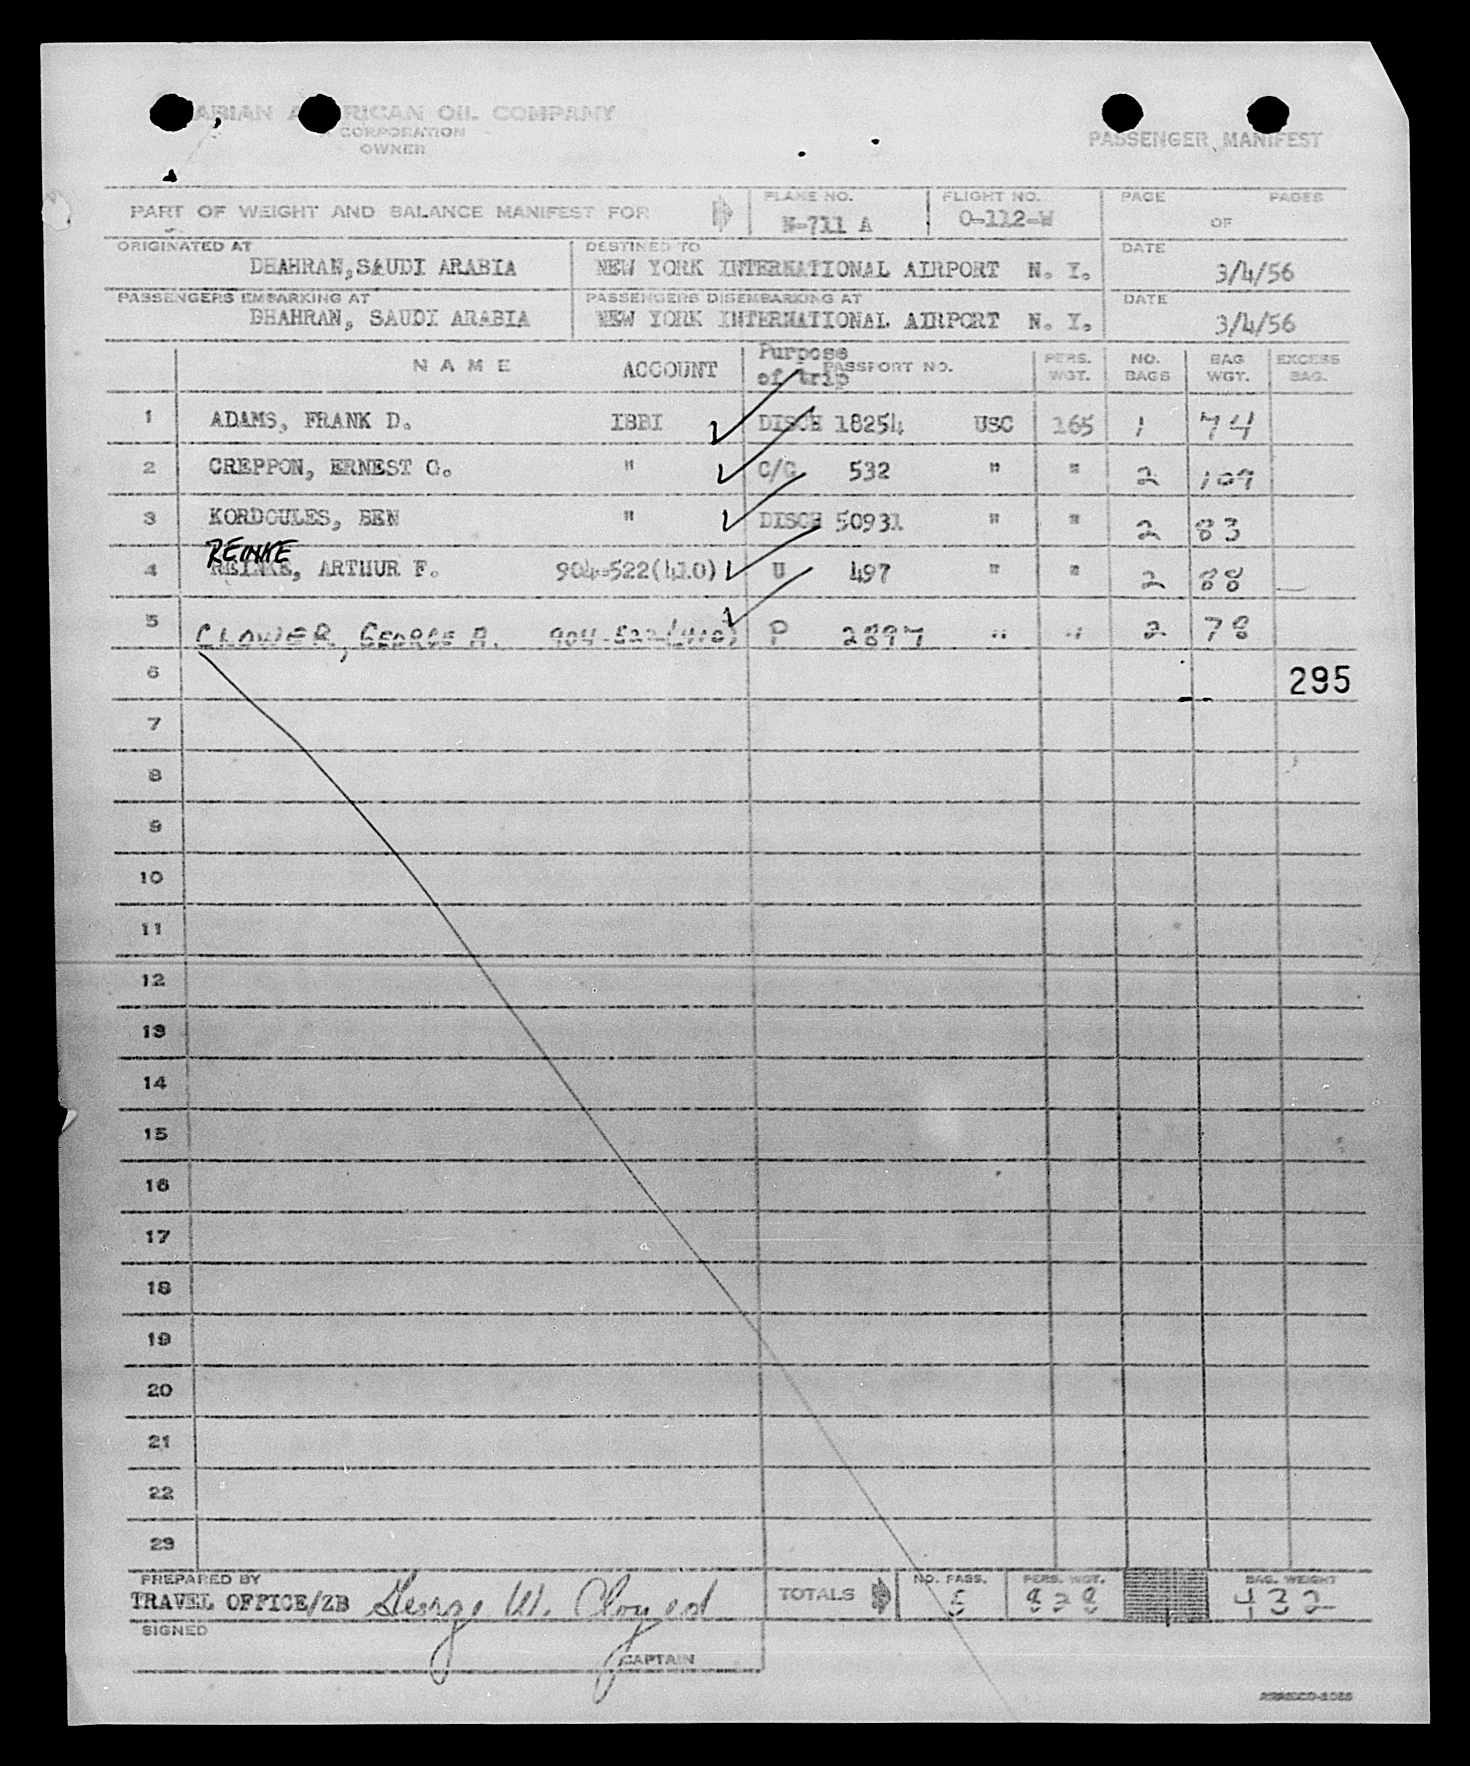 ARABIAN AMERICAN OIL COMPANY
CORPORATION
OWNER
PASSENGER MANIFEST
PART OF WEIGHT AND BALANCE MANIFEST FOR PLANE NO. N-711 A FLIGHT NO. O-112-W PAGE OF PAGES
ORIGINATED AT DHAHRAN, SAUDI ARABIA DESTINED TO NEW YORK INTERNATIONAL AIRPORT N. Y. DATE 3/4/56
PASSENGERS EMBARKING AT DHAHRAN, SAUDI ARABIA PASSENGERS DISEMBARKING AT NEW YORK INTERNATIONAL AIRPORT N. Y. DATE 3/4/56
NAME ACCOUNT Purpose of trip PASSPORT NO. PERS. WGT. NO. BAGS BAG WGT. EXCESS BAG.
1 ADAMS, FRANK D. IBBI DISCH 18254 USC 165 1 74
2 CREPPON, ERNEST O. " C/C 532 " " 2 109
3 KORDOULES, BEN " DISCH 50931 " " 2 83
REINKE
4 REINKE, ARTHUR F. 904-522(410) U 497 " " 2 88
5 CLOWER, GEORGE A. 904-522-(410) P 2897 " " 2 78
6 295
7
8
9
10
11
12
13
14
15
16
17
18
19
20
21
22
23
PREPARED BY TRAVEL OFFICE/ZB George W. Cloyed TOTALS NO. PASS. 5 PERS. WGT. 828 BAG. WEIGHT 432
SIGNED
CAPTAIN